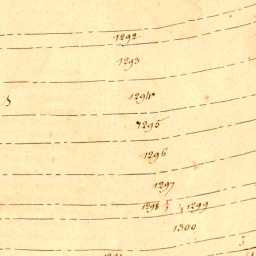 1292
1293
1294
1295
1296
1297
1298 1299
1300